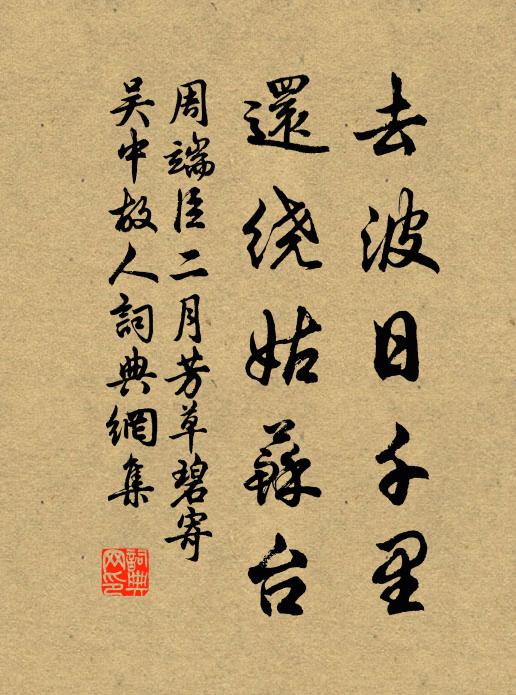 去波日千里
還绕姑蘇台
周端臣二月芳草碧寄
吴中故人詞典網集
詞典
网印